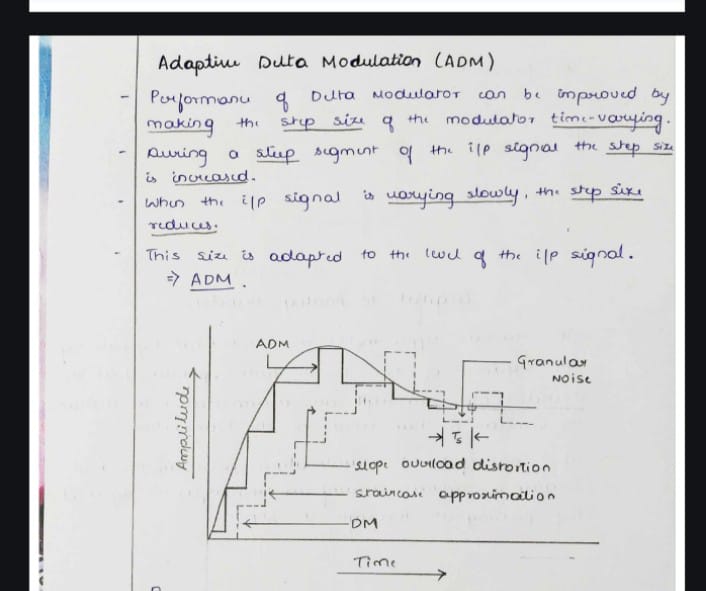 Adaptive Delta Modulation (ADM)
- Performance of Delta Modulator can be improved by
making the step size of the modulator time-varying.
- During a steep segment of the i/p signal the step size
is increased.
- When the i/p signal is varying slowly, the step size
reduces.
- This size is adapted to the level of the i/p signal.
⇒ ADM.
ADM
Granular
Noise
Amplitude
Ts
slope overload distortion
staircase approximation
DM
Time